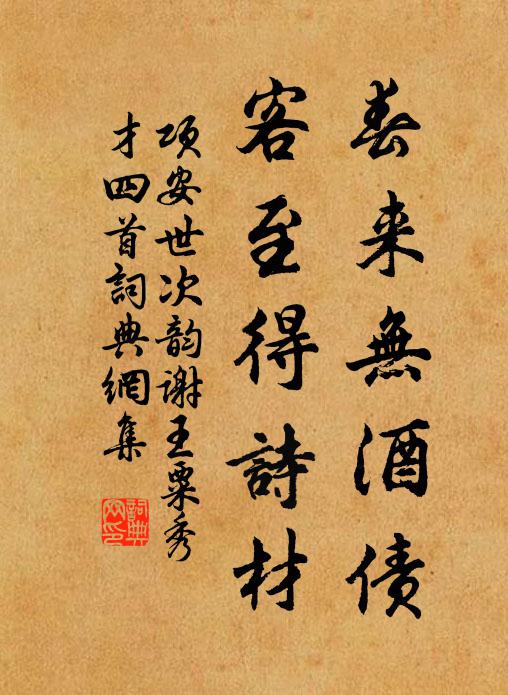 春来無酒债
客至得詩材
项安世次韵谢王粟秀
才四首詞典網集
詞典
网印